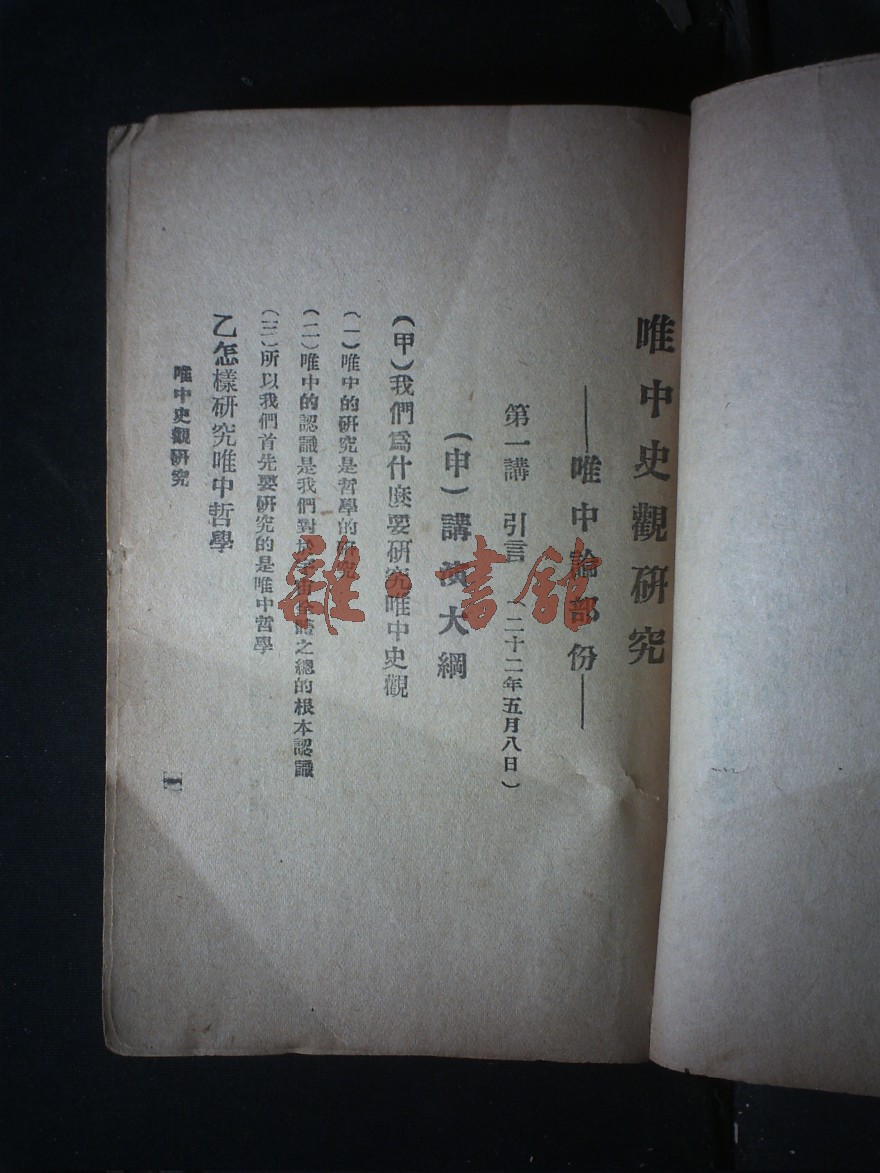 唯中史觀研究
——唯中論部份——
第一講 引言 (二十二年五月八日)
(申)講演大綱
(甲)我們爲什麼要研究唯中史觀
(一)唯中的研究是哲學的研究
(二)唯中的認識是我們對於宇宙全體之總的根本認識
(三)所以我們首先要研究的是唯中哲學
乙怎樣研究唯中哲學
唯中史觀研究
一
雜·書舘